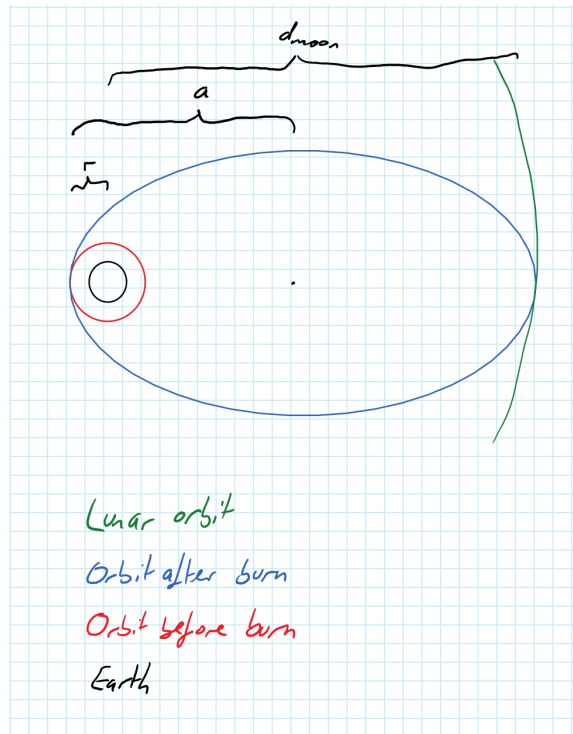 dmoon
a
r
Lunar orbit
Orbit after burn
Orbit before burn
Earth